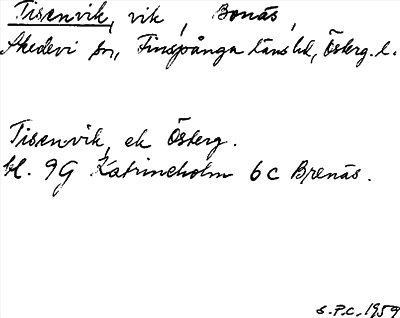 Tisenvik, vik, Bonäs,
Skedevi sn, Finspånga länshd, Österg. l.
Tisenvik, ek Österg.
bl. 9G Katrineholm 6c Brenäs.
S.P.C. 1959